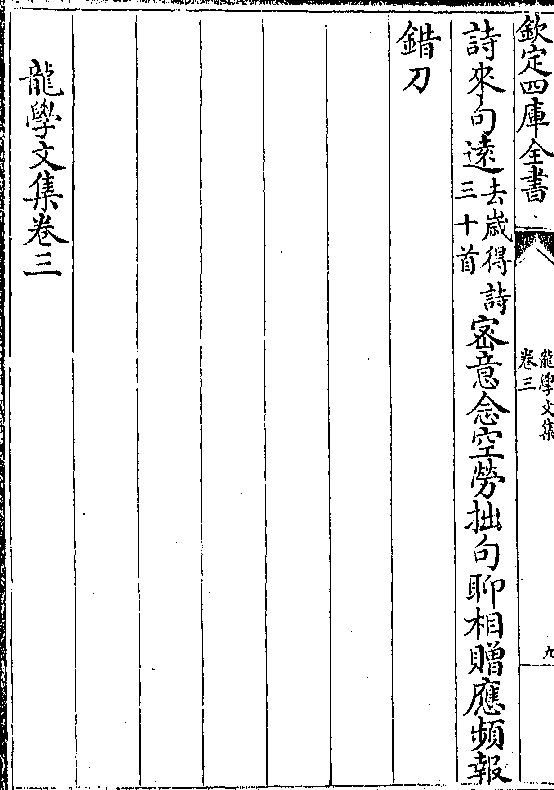 欽定四庫全書
龍學文集
卷三
九
詩來句遠去歲得詩三十首密意念空勞拙句聊相贈應頻報
錯刀
龍學文集卷三